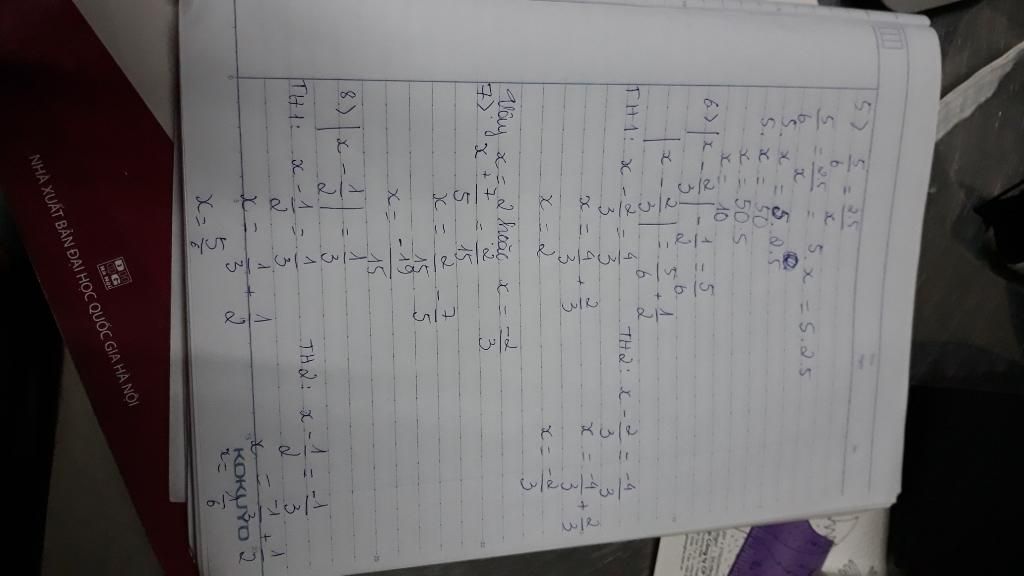 5) 5/6 = 25/x
5/6 = 25/x = 5x = 5.25
5.x = 5.25
5.x = 50
x = 50.5
x = 10
6) |x - 2/3| - 1/2 = 5/6
|x - 2/3| = 5/6 + 1/2
TH1: x - 2/3 = 4/3 TH2: x - 2/3 = -4/3
x = 4/3 + 2/3 x = -4/3 + 2/3
x = 2 x = -2/3
Vậy x = 2 hoặc x = -2/3
7) x + 7/5 = 2/15
x = 2/15 - 7/5
x = -19/15
8) |x - 1/2| = 1/3
TH1: x - 1/2 = 1/3 TH2: x - 1/2 = -1/3
x = 1/3 + 1/2 x = -1/3 + 1/2
x = 5/6 x = 1/6
KOKUYO
NHÀ XUẤT BẢN ĐẠI HỌC QUỐC GIA HÀ NỘI